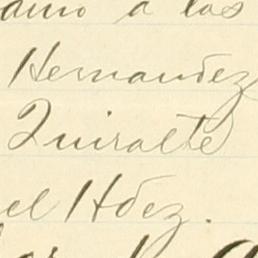 a las
Hernandez
Quiralte
el Hdez.